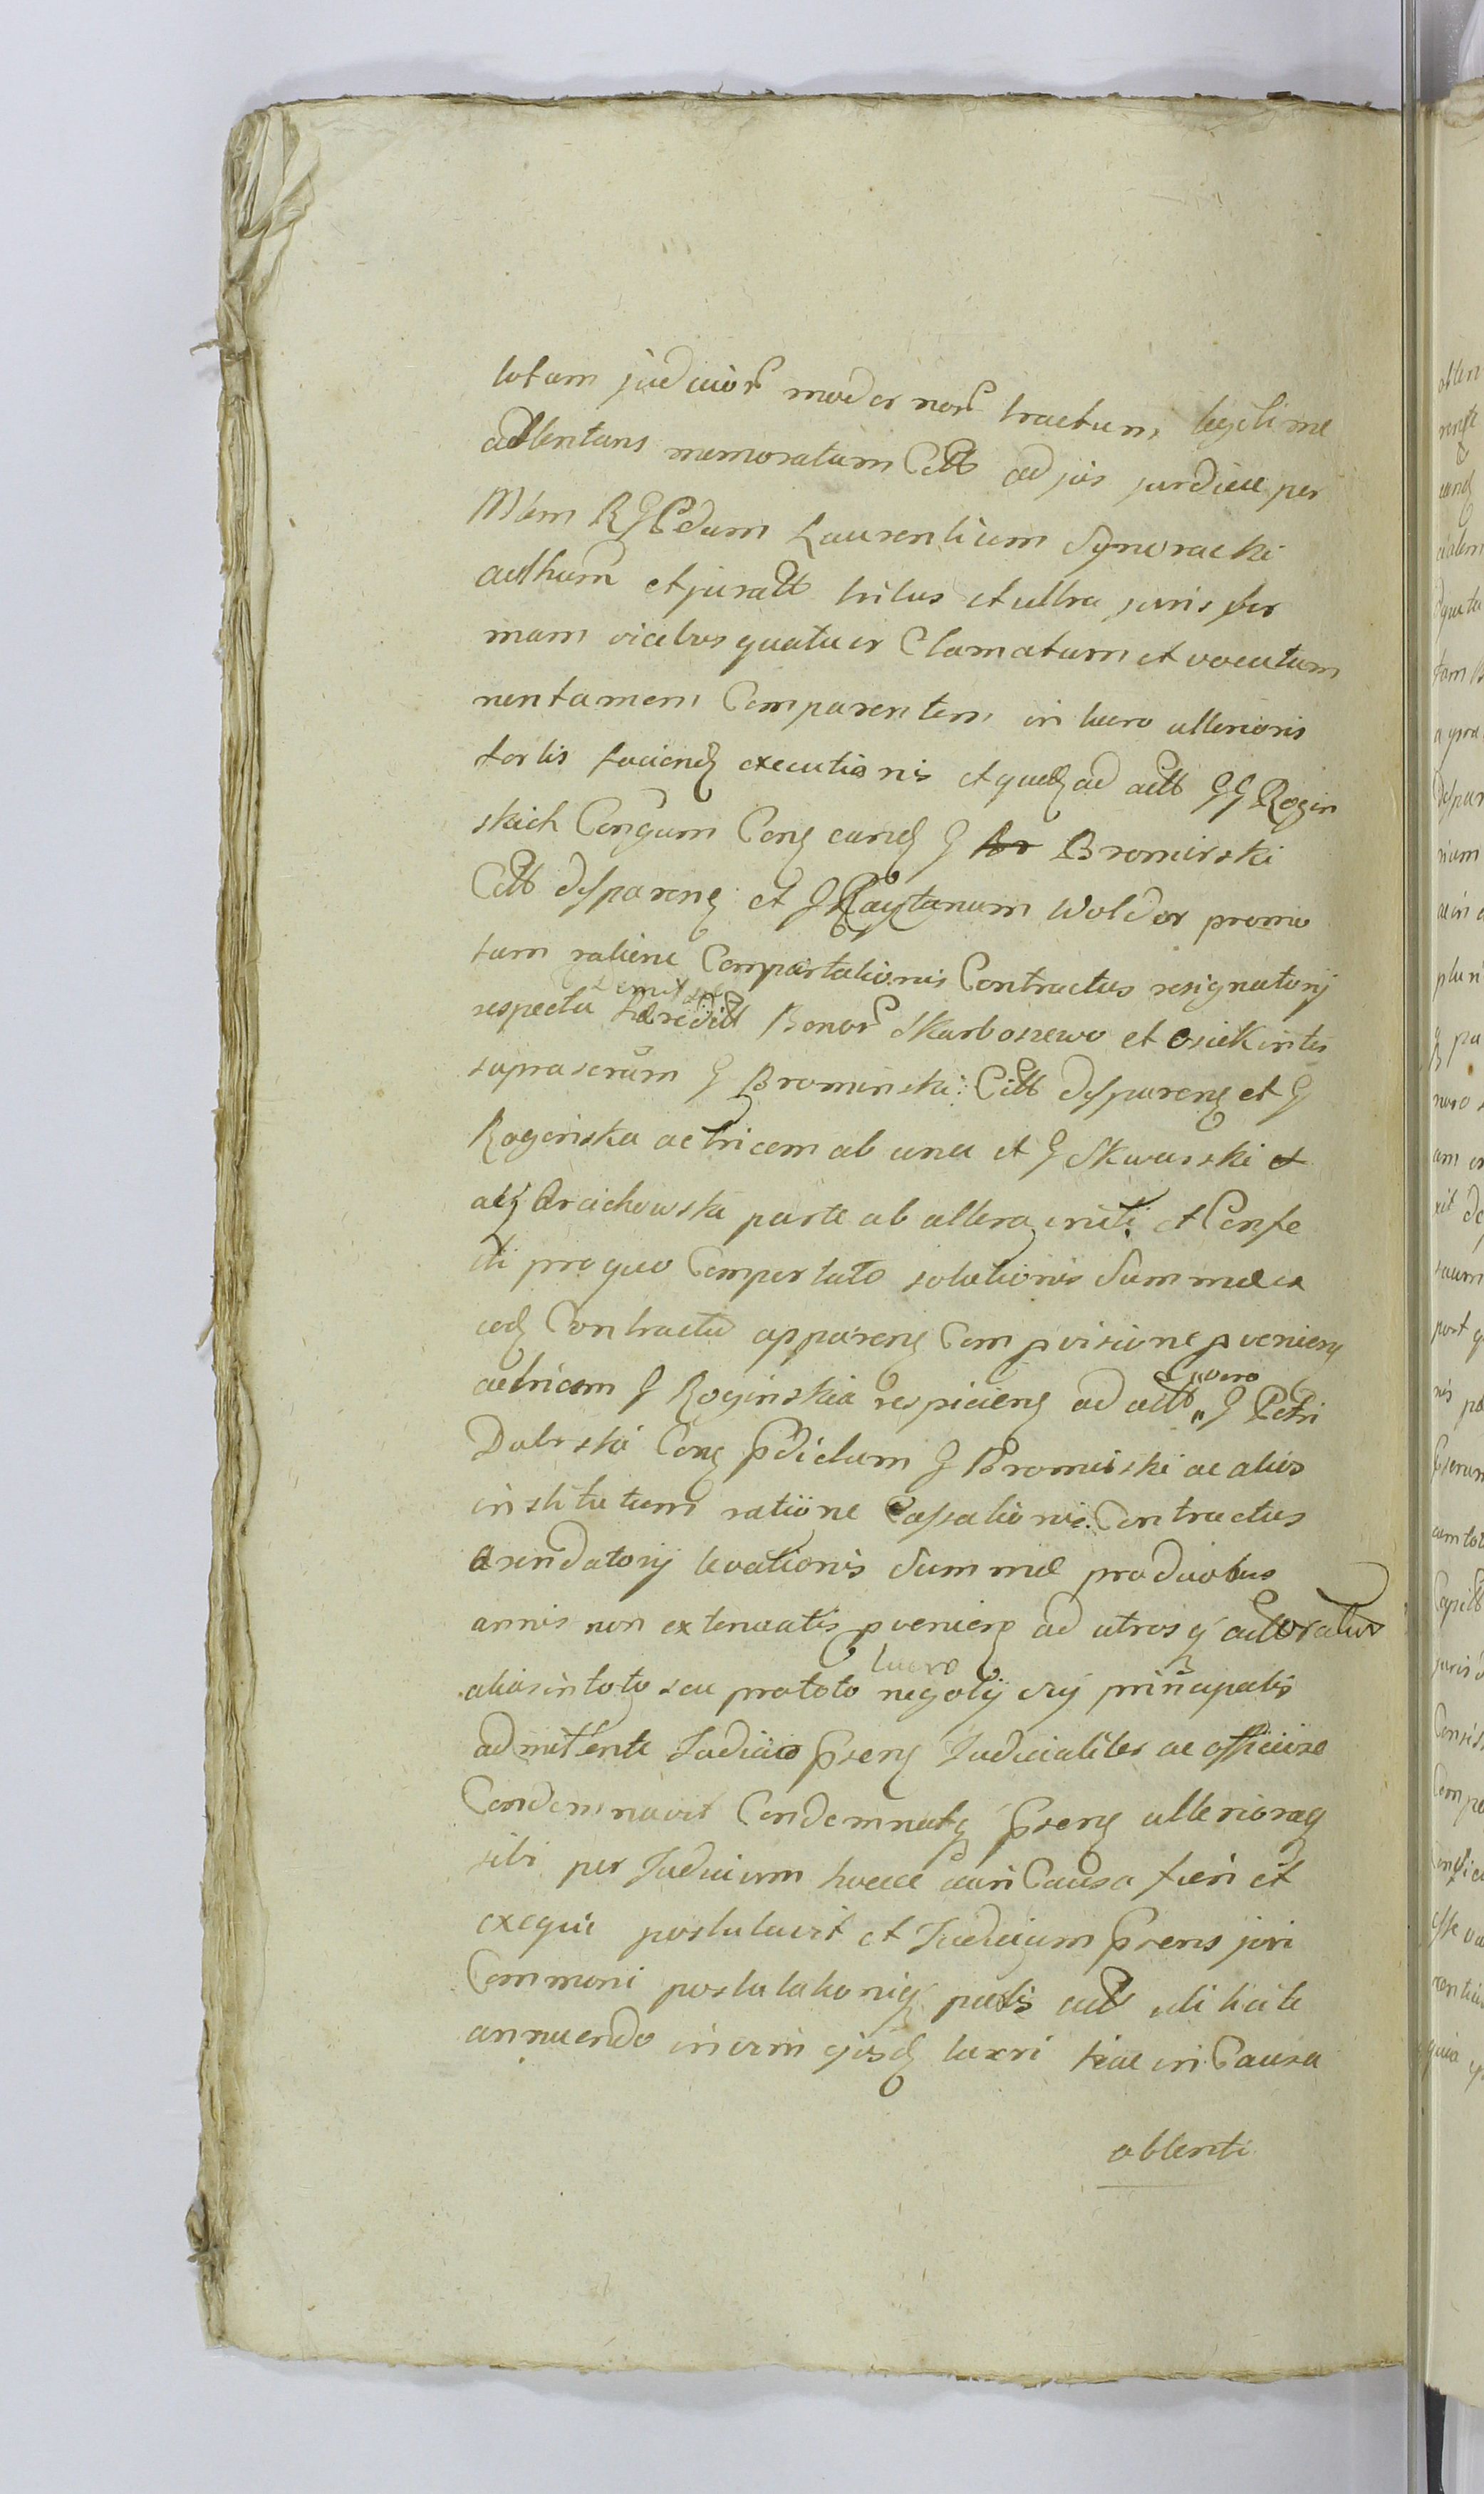 totam judicior modernor tractum legitime
attentans memoratum Citt ad jus juridice per
Mlem RGPdum Laurentium Synoracki
authum et juratt tribus et ultra juris for
mam vicibus quatuor Clamatum et vocatum
non tamen Comparentem in lucro ulterioris
fortis faciend executionis et quod ad actt GG Rogin
skich Conjgum Cong eund G Br Bromirski
Citt disparens et G Kaytanum Woldor promo
tum ratione Comportationis Contractus resignatorij
respectu Bonor Skarboszewo et Osiek inter
suprascrum G Bromirski Citt disparens et G
Roginska actricem ab una et G Skwarski et
atq Orcichowska parte ab altera initi et Confe
cti pro quo Comportato solutionis Summae ex
eod Contractu apparens Com provisione proveniens
actricem G Roginska respiciens ad actt vero G Petri
Dabrski Cong Pdictum G Bromirski ac alios
institutum ratione Cassationis Contractus
Arendatorij levationis Summae pro duobus
annis non extenuatis proveniens ad utrosq actoratus
alias in toto seu pro toto lucro negotij principalis
admittente Judicio Prens Judicialiter ac officiose
Condemnavit Condemnatq Prens ulterioraq
sibi per Judicium hocce in Causa fieri et
exequi postulavit et Judicium Prens juri
Communi postulationiq partis actt uti licite
annuendo in vim ejusd lucri hac in Causa
obtenti